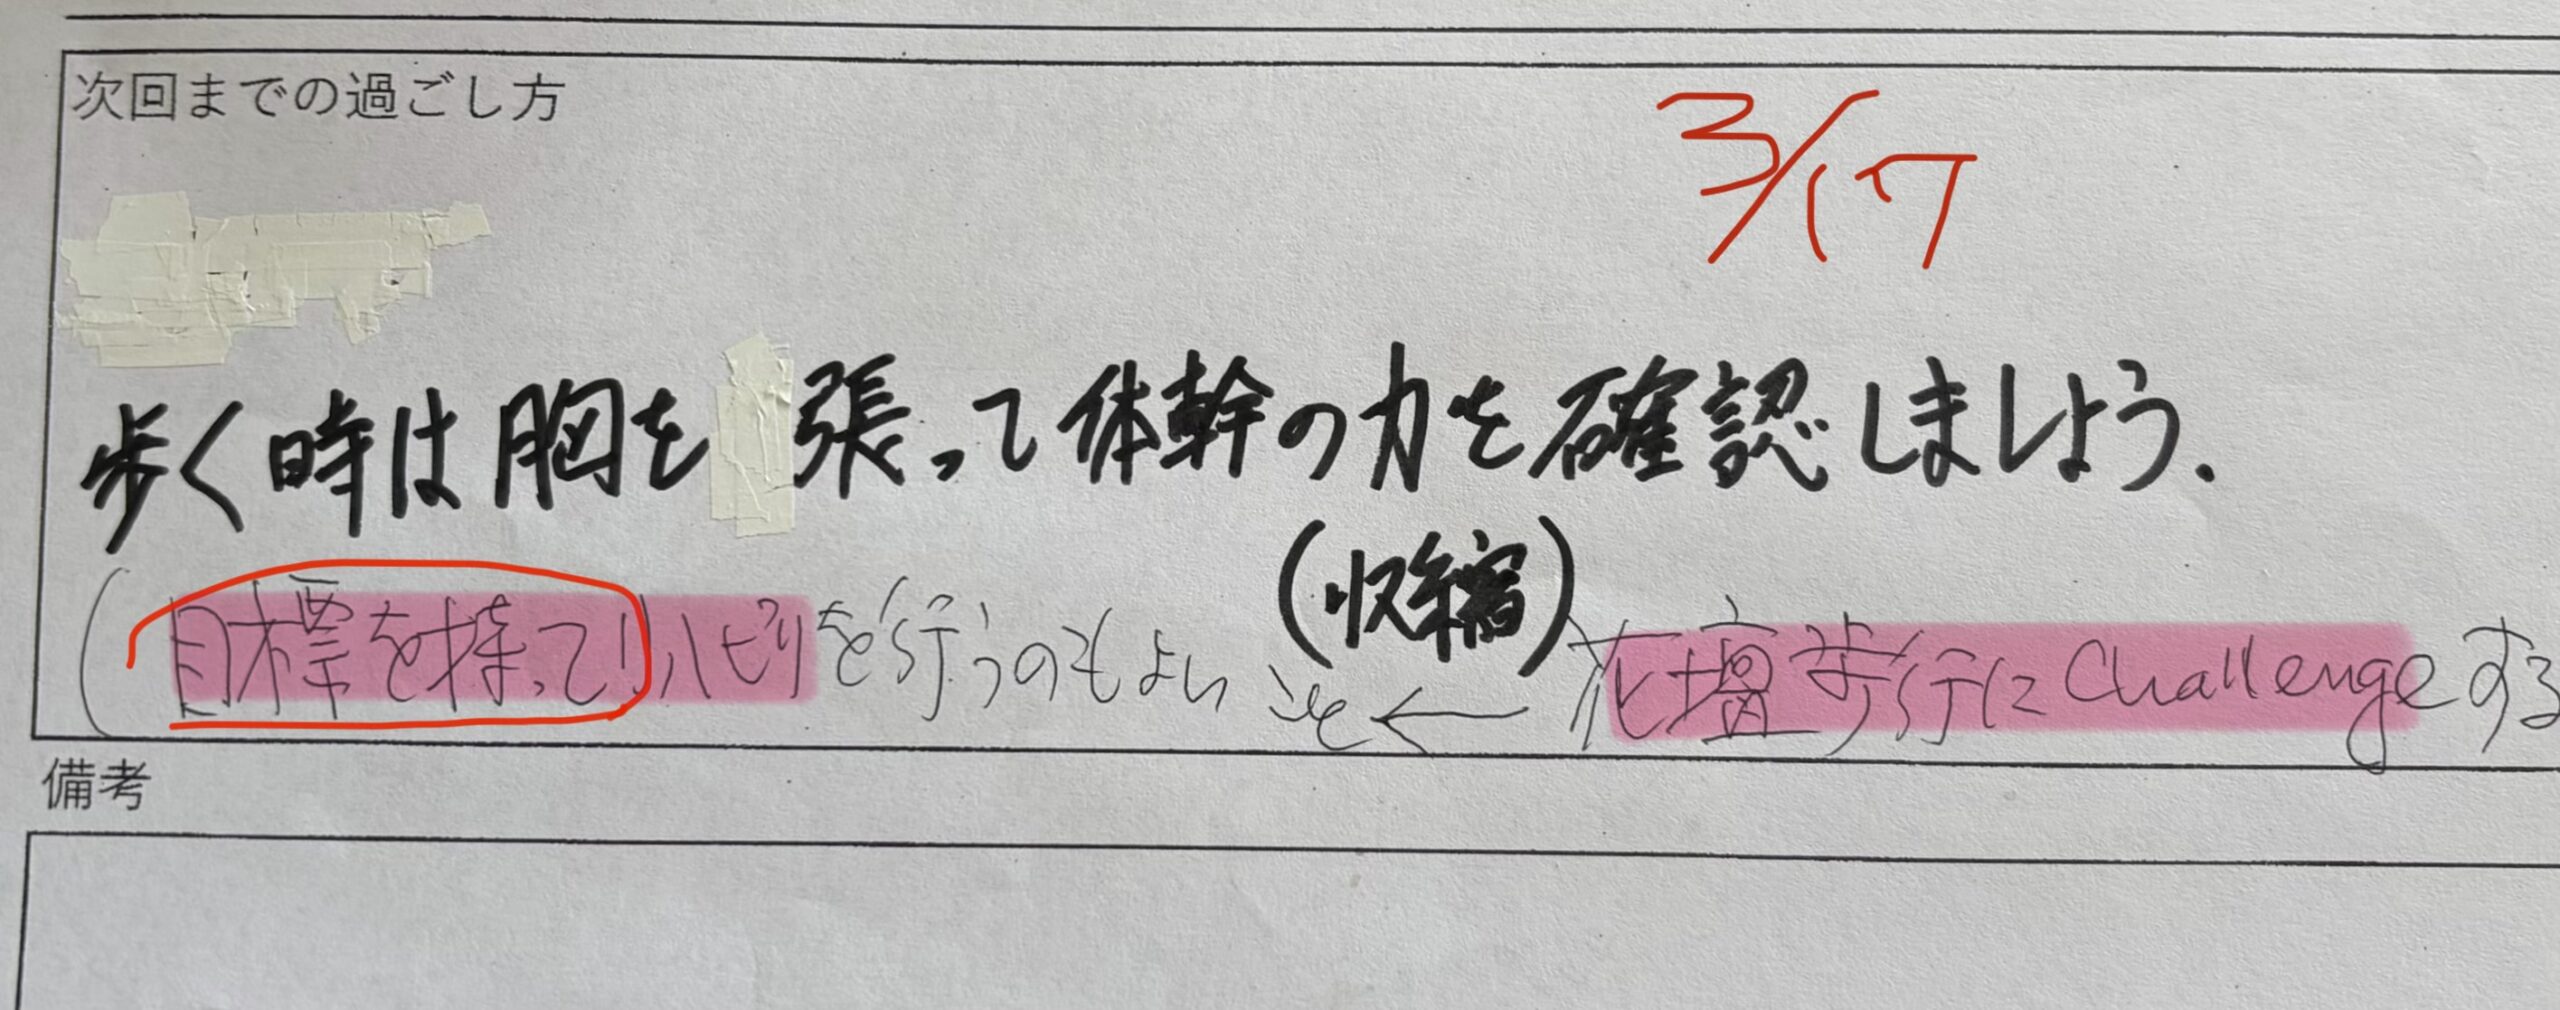 次回までの過ごし方
3/17
歩く時は胸を張って体幹の力を確認しましょう.
(収縮)
(目標を持ってリハビリを行うのもよいこと←花壇歩行にchallengeする
備考